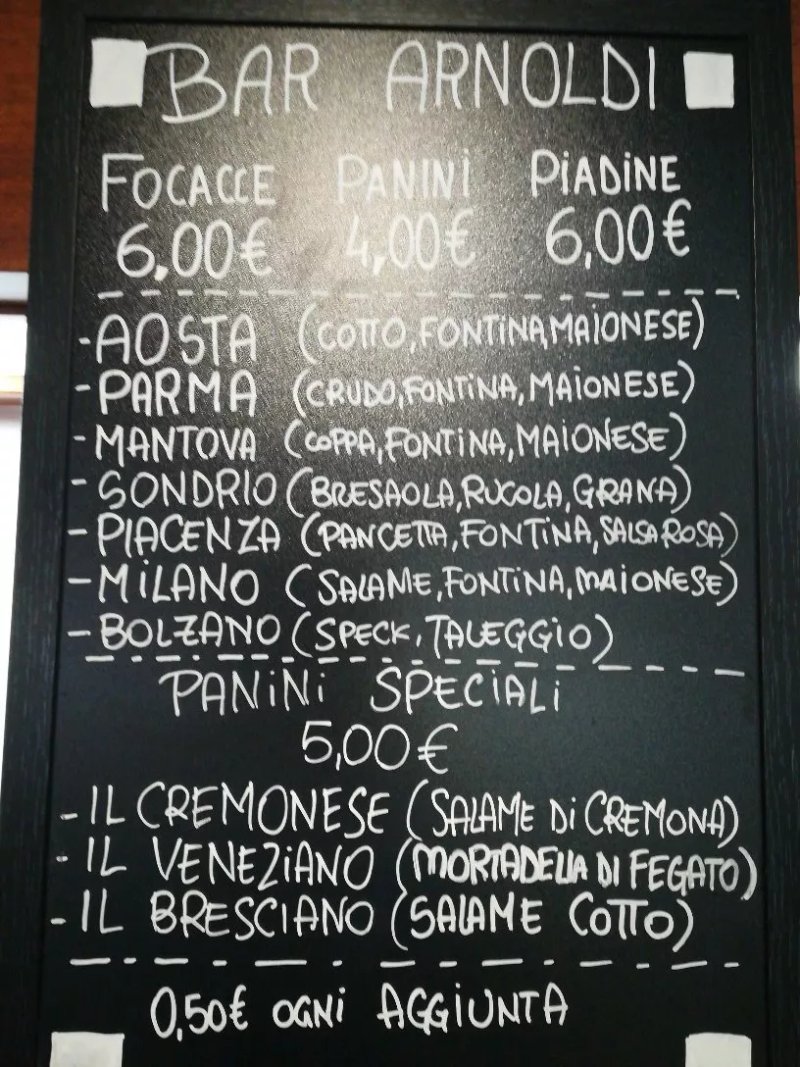 BAR ARNOLDI
FOCACCE PANINI PIADINE
6,00€ 4,00€ 6,00€
- AOSTA (COTTO, FONTINA, MAIONESE)
- PARMA (CRUDO, FONTINA, MAIONESE)
- MANTOVA (COPPA, FONTINA, MAIONESE)
- SONDRIO (BRESAOLA, RUCOLA, GRANA)
- PIACENZA (PANCETTA, FONTINA, SALSA ROSA)
- MILANO (SALAME, FONTINA, MAIONESE)
- BOLZANO (SPECK, TALEGGIO)
PANINI SPECIALI
5,00€
- IL CREMONESE (SALAME DI CREMONA)
- IL VENEZIANO (MORTADELLA DI FEGATO)
- IL BRESCIANO (SALAME COTTO)
0,50€ OGNI AGGIUNTA